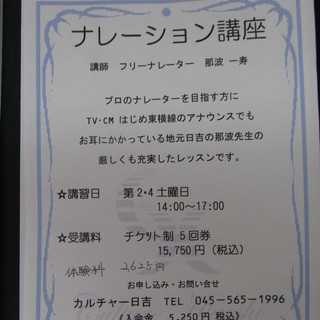 ナレーション講座
講師 フリーナレーター 那波 一寿
プロのナレーターを目指す方に
TV・CM はじめ東横線のアナウンスでも
お耳にかかっている地元日吉の那波先生の
厳しくも充実したレッスンです。
☆講習日 第2・4土曜日
14:00〜17:00
☆受講料 チケット制 5回券
15,750円(税込)
体験料 2,625円
お申し込み・お問い合せ
カルチャー日吉 TEL 045-565-1996
(入会金 5,250円 税込)